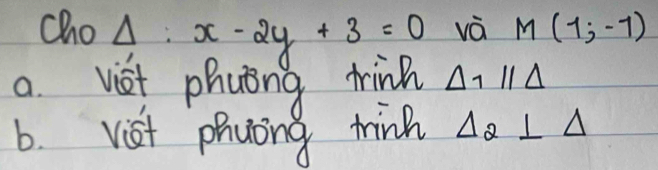 Cho Δ : x - 2y + 3 = 0 và M (1; -1)
a. Viết phương trình Δ1 // Δ
b. Viết phương trình Δ2 ⊥ Δ